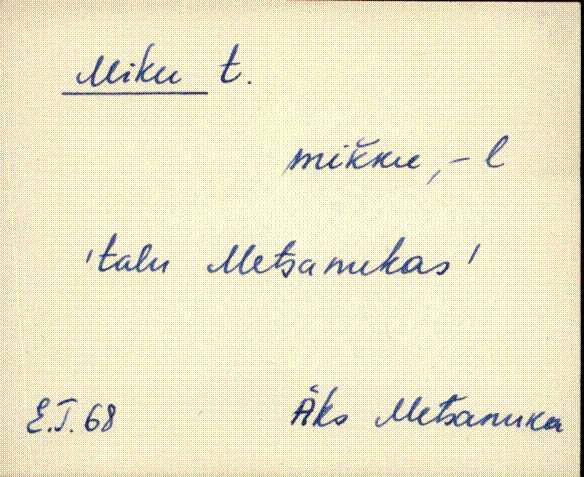 Miku t.
mikku, -l
'talu Metsanukas'
E.T. 68 Äks Metsanuka